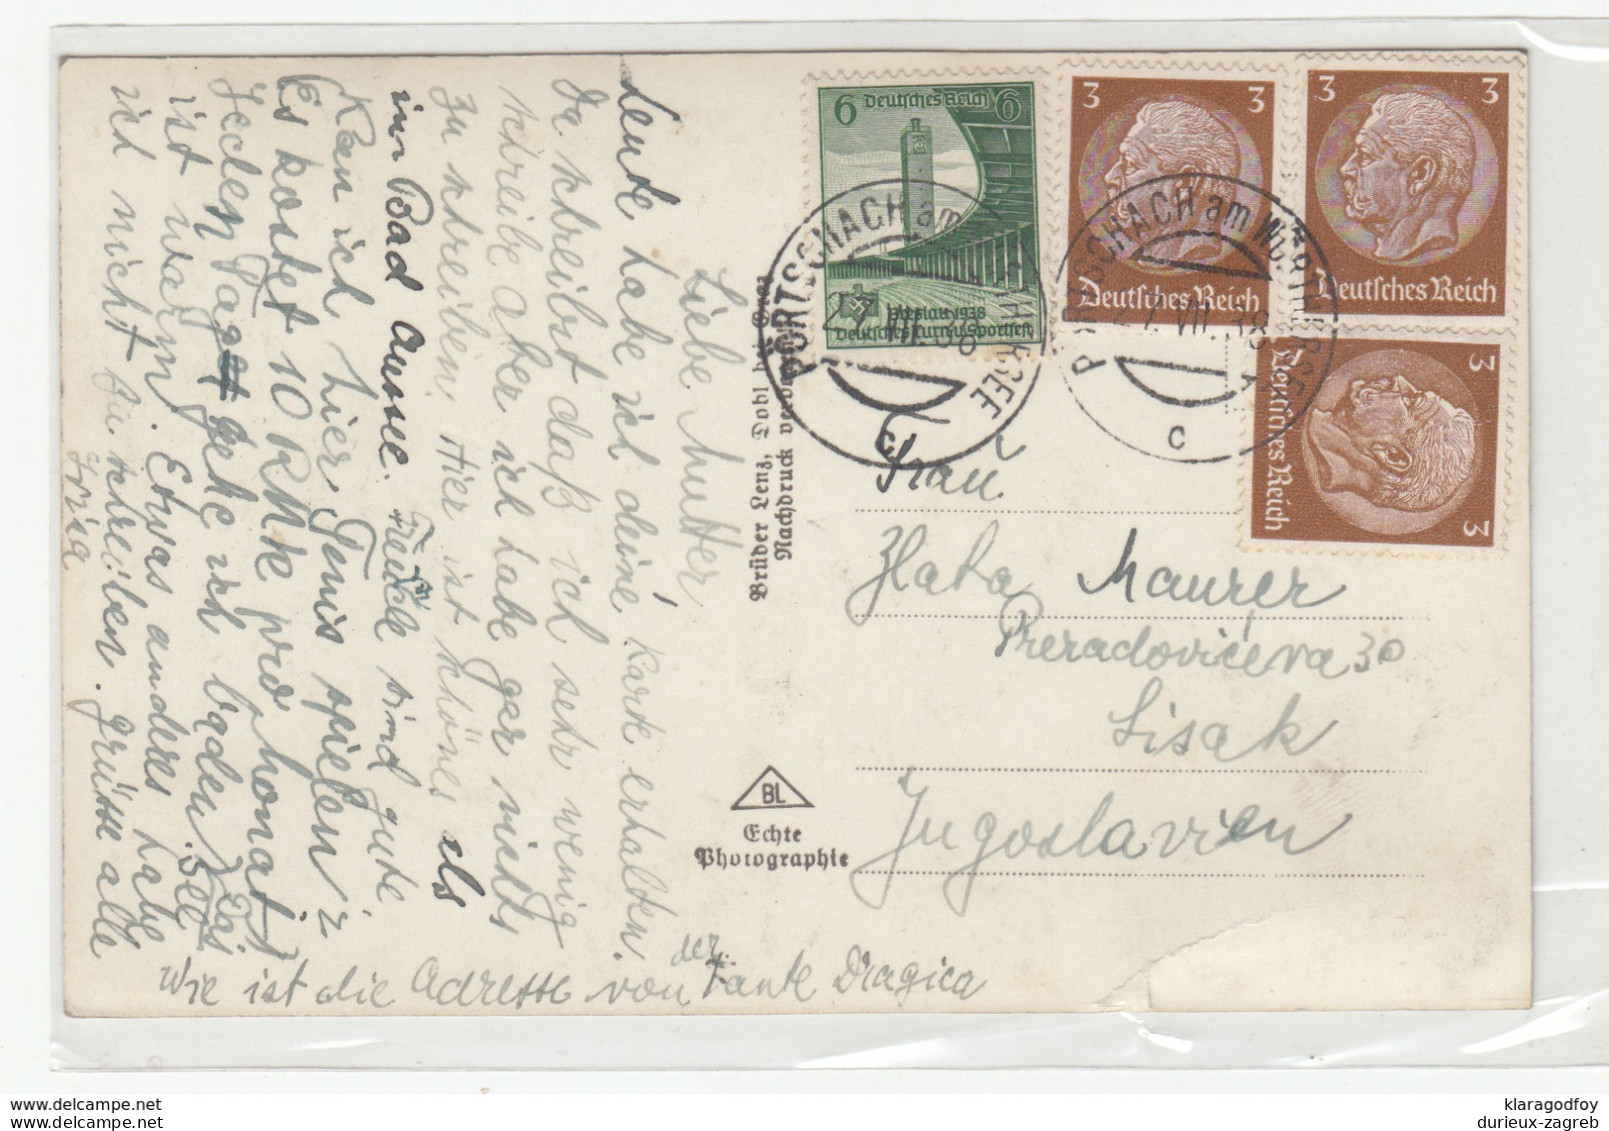 Liebe Mutter
Heute habe ich deine Karte erhalten.
Du schreibst daß ich sehr wenig
schreibe aber ich habe gar nichts
zu schreiben. Hier ist schönes als
in Bad Aussee. sind gute
Kan ich hier Tenis spielen?
Es kostet 10 RMk pro Monat.
Jeden Tag gehe ich baden. Das
ist warm. Etwas anderes habe
ich nicht zu schreiben. grüsse alle
Irina
Wie ist die Adresse von der Tante Dragica
Brüder Lenz, Dobl bei Graz
Nachdruck verboten
BL
Echte
Photographie
6 Deutsches Reich 6
Breslau 1938
Deutsches Turn-u.Sportfest
3 3
Deutsches Reich
3 3
Deutsches Reich
3 3
Deutsches Reich
PÖRTSCHACH am WÖRTHERSEE
27.VII.38
C
PÖRTSCHACH am WÖRTHERSEE
27.VII.38
C
Frau
Zlata Maurer
Preradovićeva 30
Sisak
Jugoslavien
klaragodfoy
durieux-zagreb